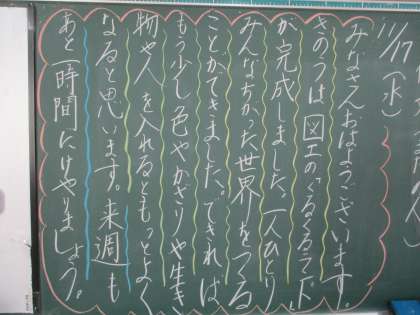 11/17(水)
みなさんおはようございます。
きのうは図工の「くるくるランド」
が完成しました。一人ひとり
みんなちがった世界をつくる
ことができました。できれば
もう少し色やかざりや生き
物や人を入れるともっとよく
なると思います。来週も
あと一時間だけやりましょう。